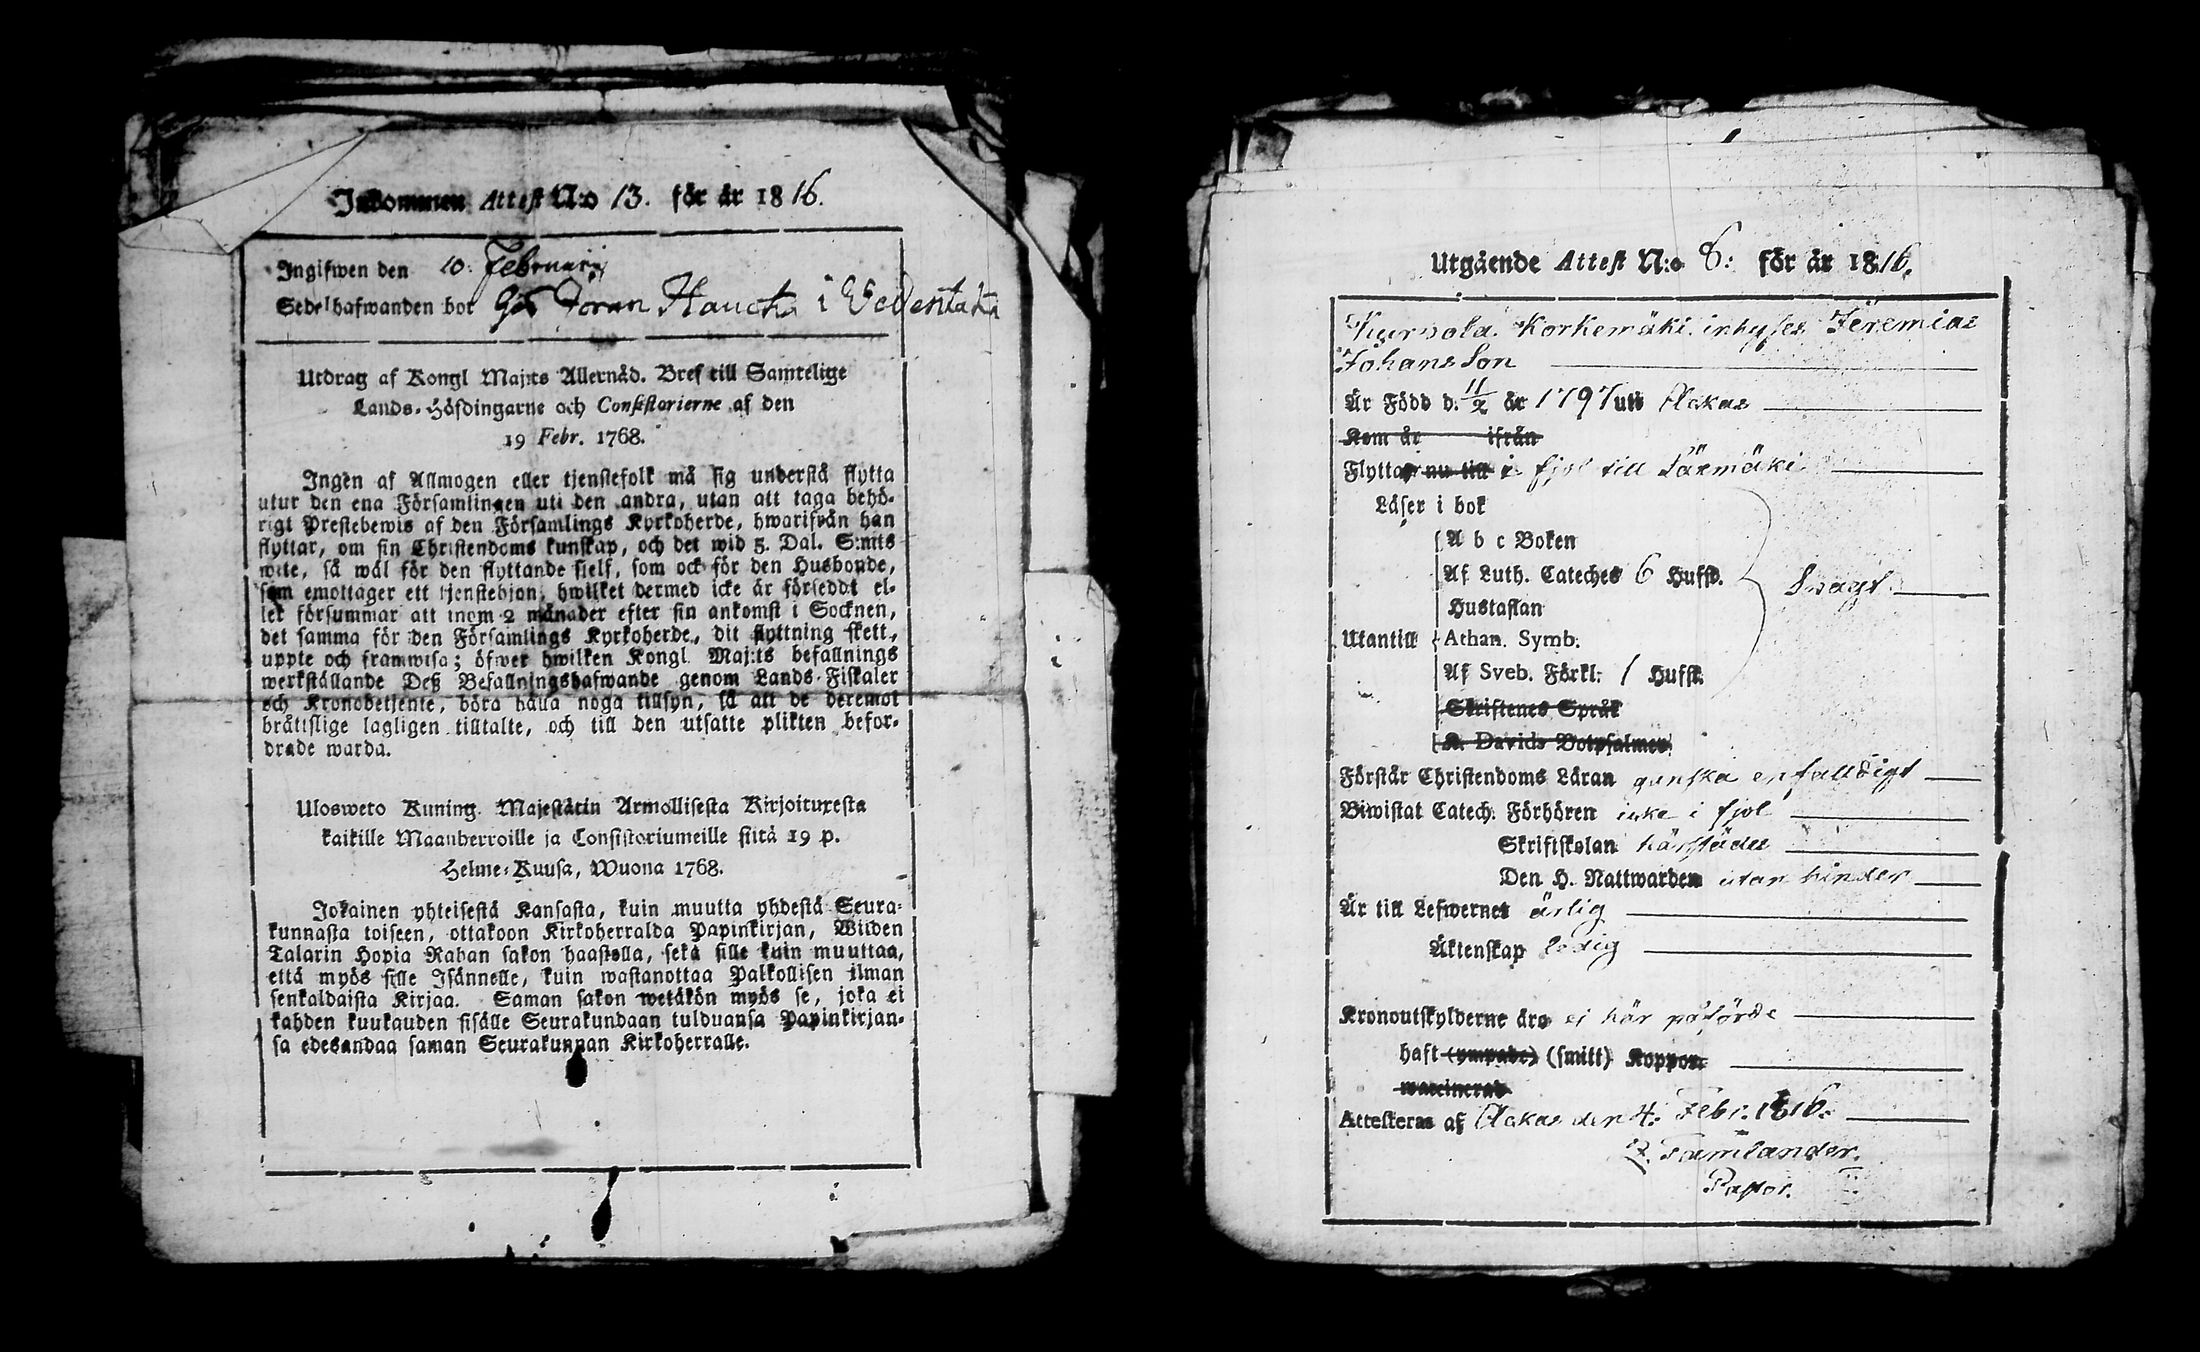 Inkommen Attest N:o 13. för år 1816.
Ingifwen den 10. Februarii
Sedelhafwanden bor hos Jöran Haucka i Wedentaka
Utdrag af Kongl Maj:ts Allernåd. Bref till Samtelige
Lands-Höfdingarne och Consistorierne af den
19 Febr. 1768.
Ingen af Allmogen eller tjenstefolk må sig understå flytta
utur den ena Församlingen uti den andra, utan att taga behö-
rigt Prestebewis af den Församlings Kyrkoherde, hwarifrån han
flyttar, om sin Christendoms kunskap, och det wid 5. Dal. S:mts
wite, så wäl för den flyttande sjelf, som ock för den Husbonde,
som emottager ett tjenstehjon, hwilket dermed icke är förseddt el-
ler försummar att inom 2 månader efter sin ankomst i Socknen,
det samma för den Församlings Kyrkoherde, dit flyttning skett,
uppte och framwisa; öfwer hwilken Kongl Maj:ts befallnings
werkställande Deß Befallningshafwande genom Lands-Fiskaler
och Kronobetjente, böra hålla noga tillsyn, så att de deremot
bråttslige lagligen tilltalte, och till den utsatte plikten befor-
drade warda.
Ulosweto Kuning. Majestätin Armollisesta Kirjoituxesta
kaikille Maanherroille ja Consistoriumeille siitä 19 p.
Helme-Kuusa, Wuona 1768.
Jokainen yhteisestä Kansasta, kuin muutta yhdestä Seura-
kunnasta toiseen, ottakoon Kirkoherralda Papinkirjan, Wiiden
Talarin Hopia Rahan sakon haastolla, sekä sille kuin muuttaa,
että myös sille Isännelle, kuin wastanottaa Palkollisen ilman
senkaldaista Kirjaa. Saman sakon wetäkön myös se, joka ei
kahden kuukauden sisälle Seurakundaan tulduansa Papinkirjan-
sa edesandaa saman Seurakunnan Kirkoherralle.
Utgående Attest N:o 6: för år 1816.
Kursola Korkemäki inhyses Jeremias
Johansson
Är Född d. 11/2 år 1797 uti Ackas
Kom år ifrån
Flyttar nu till i fjol till Särmäki
Läser i bok
A b c Boken
Af Luth. Cateches 6 Hufst.
Swagt
Hustaflan
Utantill Athan. Symb.
Af Sveb. Förkl. 1 Hufst.
Skriftenes Språk
K. Davids Botpsalmer
Förstår Christendoms Läran ganska enfalldigt
Biwistat Catech. Förhören icke i fjol
Skriftskolan härstädes
Den H. Nattwarden utan hinder
Är till Lefwernet ärlig
Äktenskap ledig
Kronoutskylderne äro ej här påförde
haft (ympade) (smitt) Koppor
waccinerad
Attesteras af Ackas den 4. Febr. 1816.
Tamlander.
Pastor.